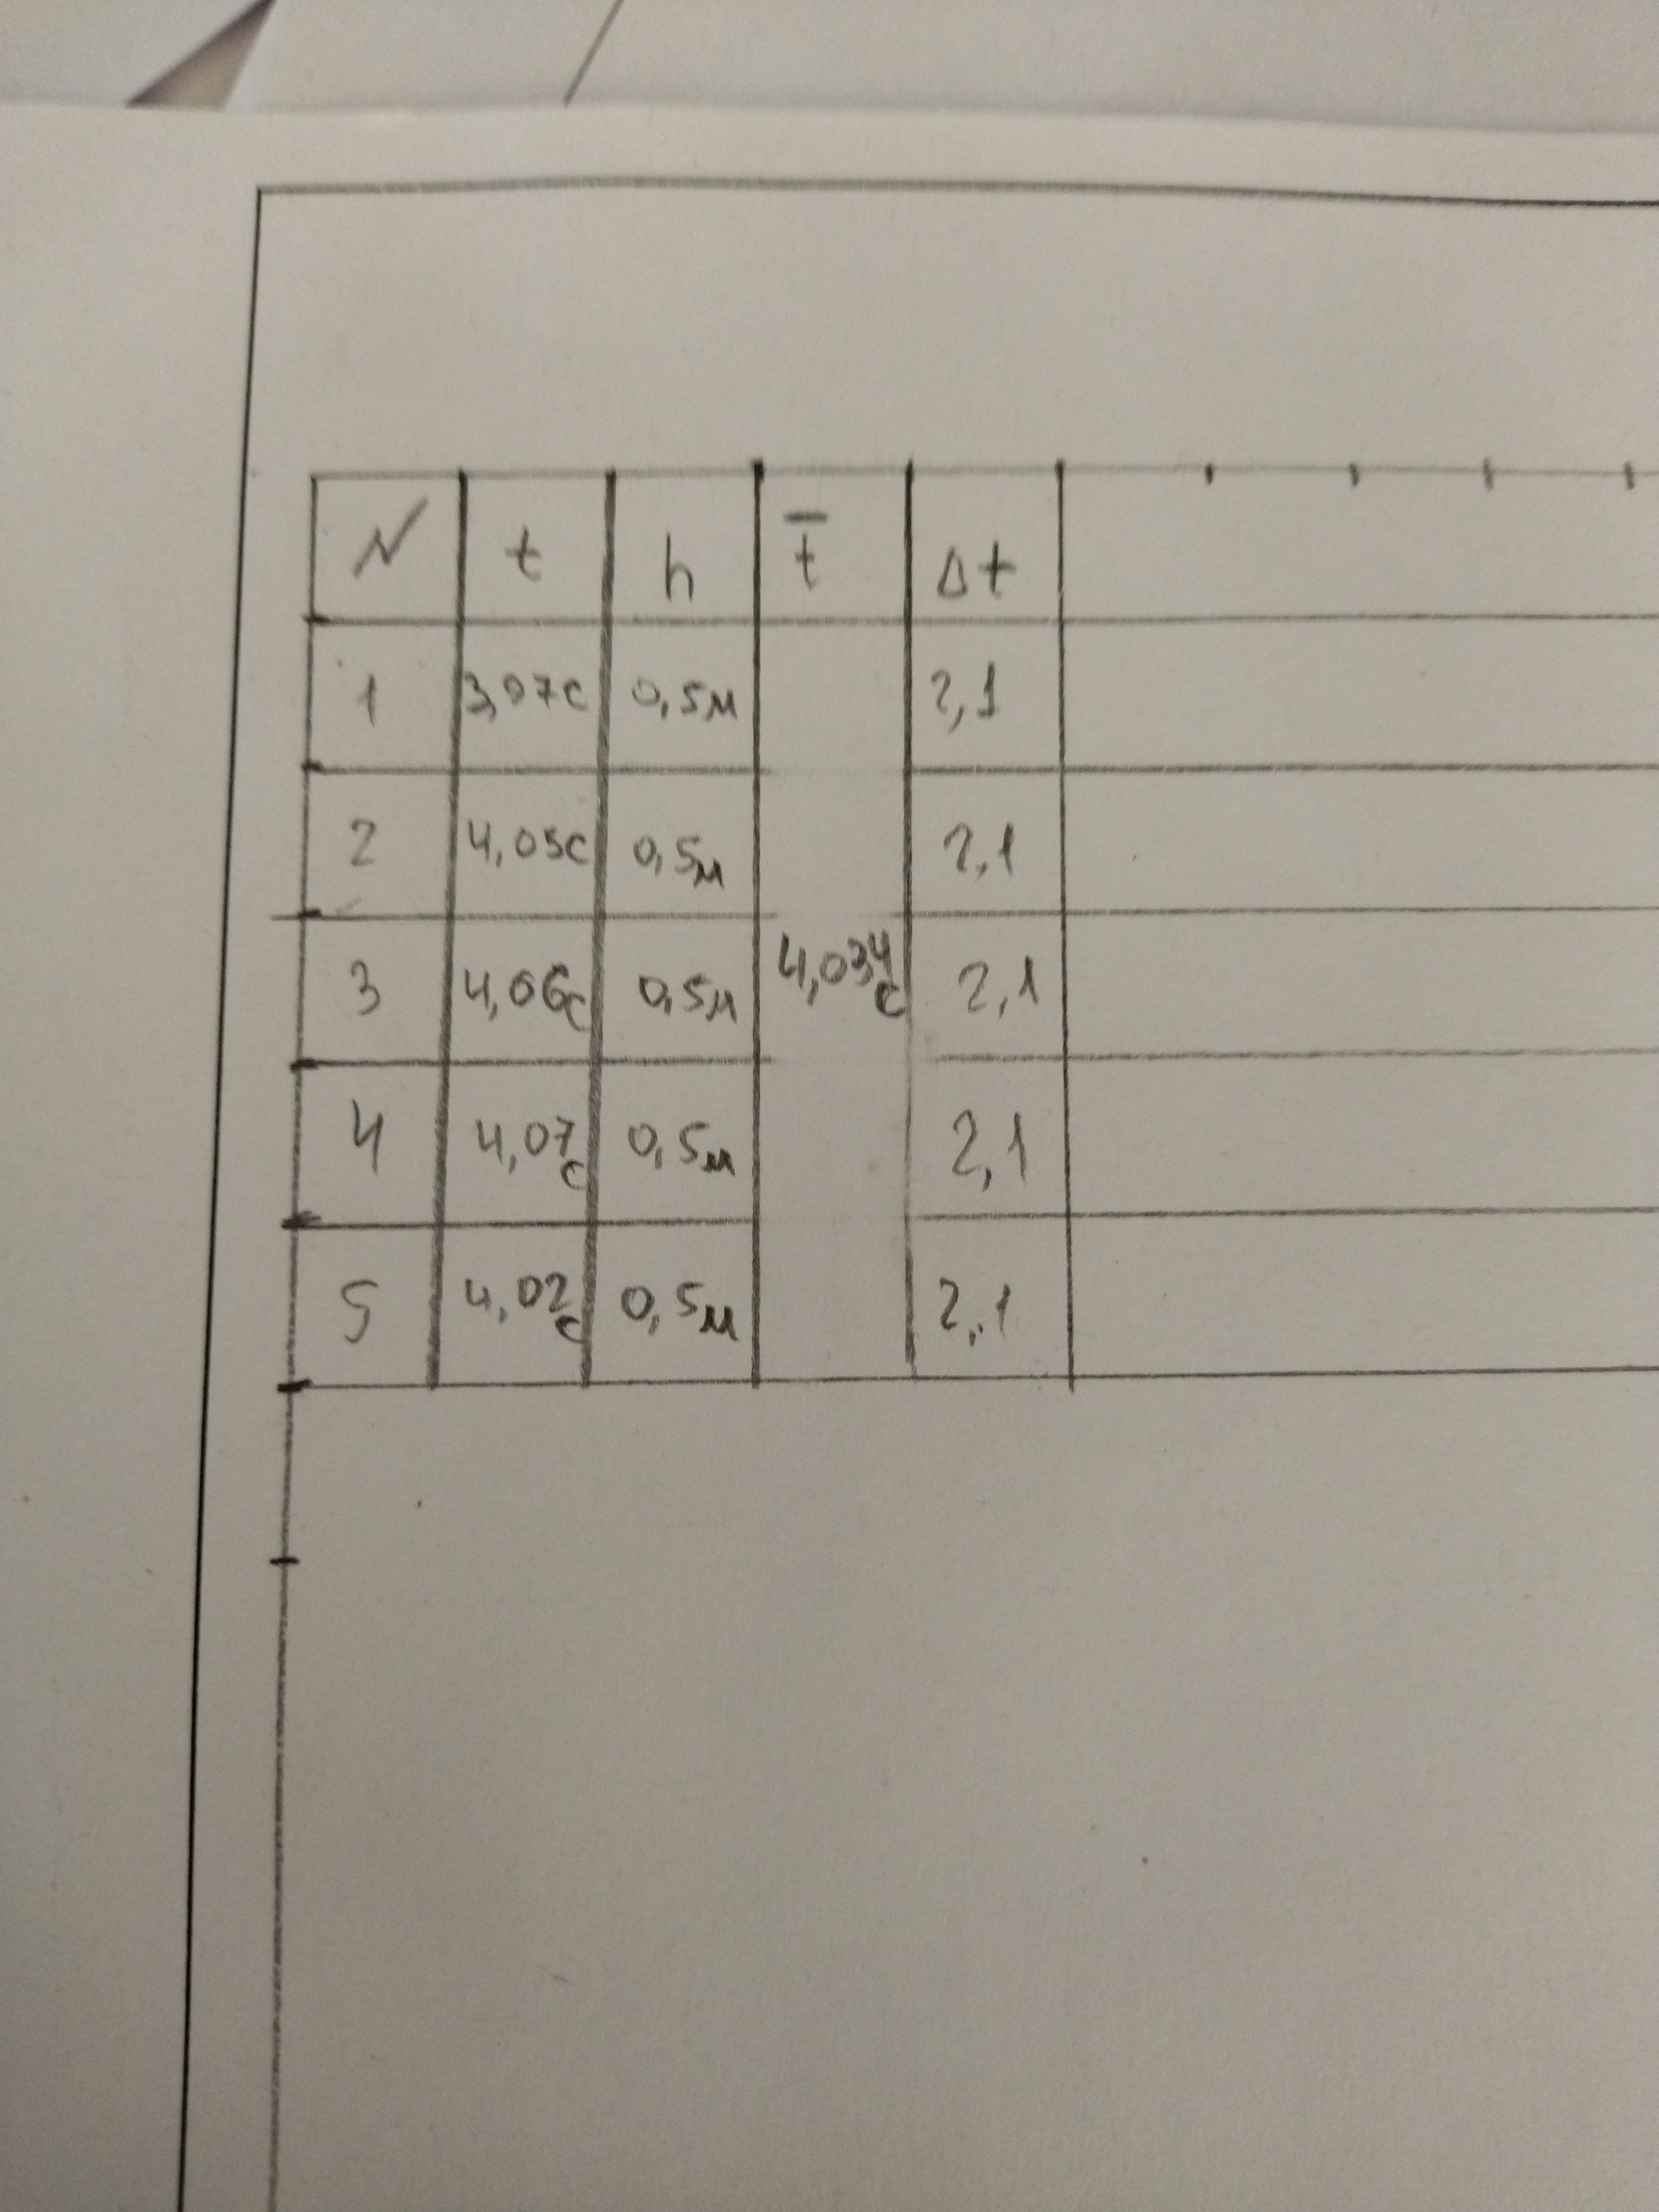 N t h t̄ Δt
1 3,07с 0,5м 2,1
2 4,05с 0,5м 2,1
3 4,06с 0,5м 4,034с 2,1
4 4,07с 0,5м 2,1
5 4,02с 0,5м 2,1